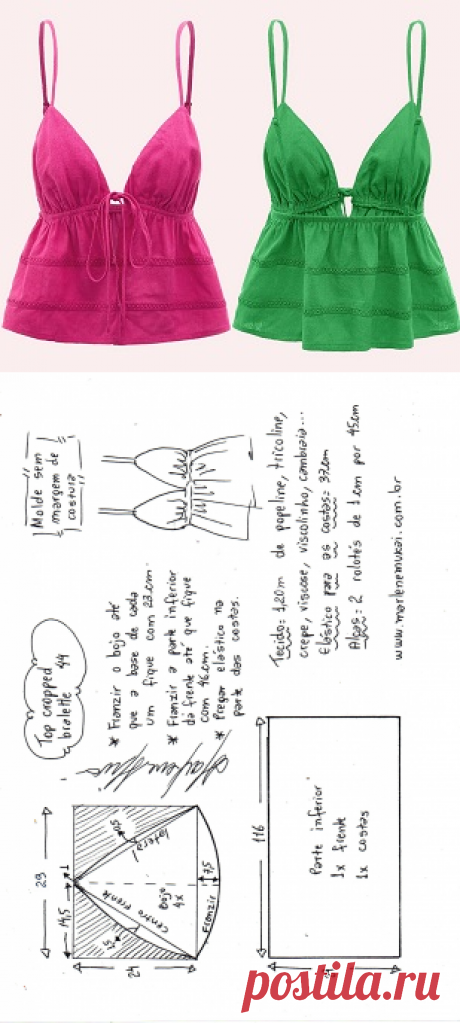 Molde sem
margem de
costura
Top cropped
bralette 44
* Franzir o bojo até
que a base de cada
um fique com 23 cm.
* Franzir a parte inferior
da frente até que fique
com 46 cm.
* Pregar elástico na
parte das costas.
Tecido: 1,20m de popeline, tricoline,
crepe, viscose, viscolinho, cambraia...
Elástico para as costas: 32cm
Alças: 2 rolotés de 1 cm por 45cm
www.marlenemukai.com.br
29
14,5
1
24
lateral
centro frente
Bojo
4x
7,5
Franzir
116
Parte inferior
1x frente
1x costas
postila.ru